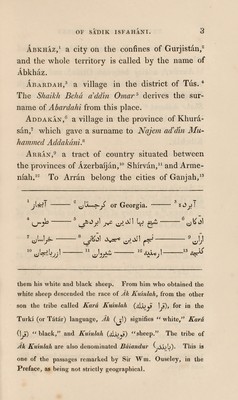 OF SÁDIK ISFAHÁNI. 3
ÁBKHÁZ,¹ a city on the confines of Gurjistán,²
and the whole territory is called by the name of
Ábkház.
ÁBARDAH,³ a village in the district of Tús.⁴
The Shaikh Behá a'ddín Omar⁵ derives the sur-
name of Abardahi from this place.
ADDAKÁN,⁶ a village in the province of Khurá-
sán,⁷ which gave a surname to Najem ad'dín Mu-
hammed Addakáni.⁸
ARRÁN,⁹ a tract of country situated between
the provinces of Ázerbaíján,¹⁰ Shírván,¹¹ and Arme-
níah.¹² To Arrán belong the cities of Ganjah,¹³
¹ ابخاز —— ² گرجستان or Georgia. —— ³ ابرده
⁴ طوس —— ⁵ شیخ بها الدین عمر ابردهي —— ⁶ ادکان
⁷ خراسان —— ⁸ نجم الدین محمد ادکاني —— ⁹ اران
¹⁰ اذربایجان —— ¹¹ شیروان —— ¹² ارمنیه —— ¹³ گنجه
them his white and black sheep. From him who obtained the
white sheep descended the race of Ák Kuinlah, from the other
son the tribe called Kará Kuinlah (قرا قوینلو), for in the
Turki (or Tátár) language, Ák (اق) signifies "white," Kará
(قرا) "black," and Kuinlah (قوینلو) "sheep." The tribe of
Ák Kuinlah are also denominated Báiandur (بایندر). This is
one of the passages remarked by Sir Wm. Ouseley, in the
Preface, as being not strictly geographical.